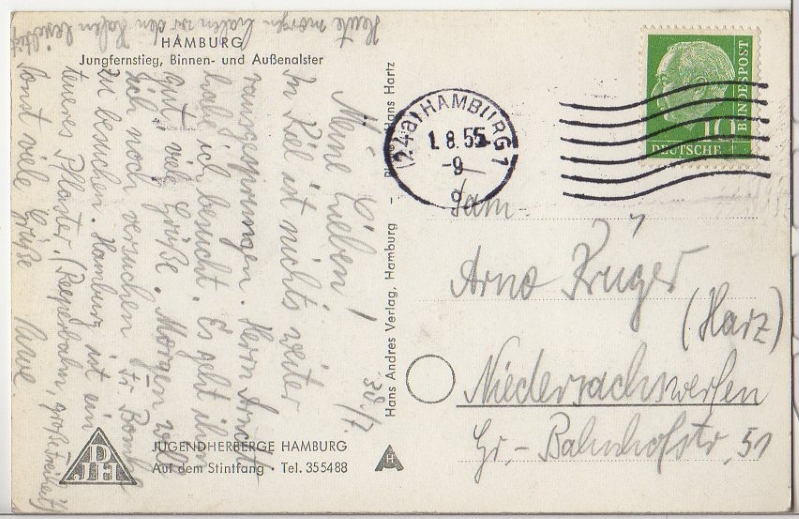 HAMBURG
Jungfernstieg, Binnen- und Außenalster
Heute morgen haben wir den Hafen besichtigt
30./7.
Meine Lieben!
In Kiel ist nichts weiter
rausgesprungen. Herrn Arndt
habe ich besucht. Es geht ihm
gut, viele Grüße. Morgen will
ich noch versuchen Fr.
zu besuchen. Hamburg ist ein
teures Pflaster. (Reeperbahn, große Freiheit)
Sonst viele Grüße
JUGENDHERBERGE HAMBURG
Auf dem Stintfang Tel. 355488
DJH
Hans Andres Verlag, Hamburg - Hans Hartz
(24a) HAMBURG 1
1.8.55
-9
DEUTSCHE BUNDESPOST
10
Fam.
Arno Krüger
(Harz)
Niedersachswerfen
Gr.-Bahnhofstr. 51